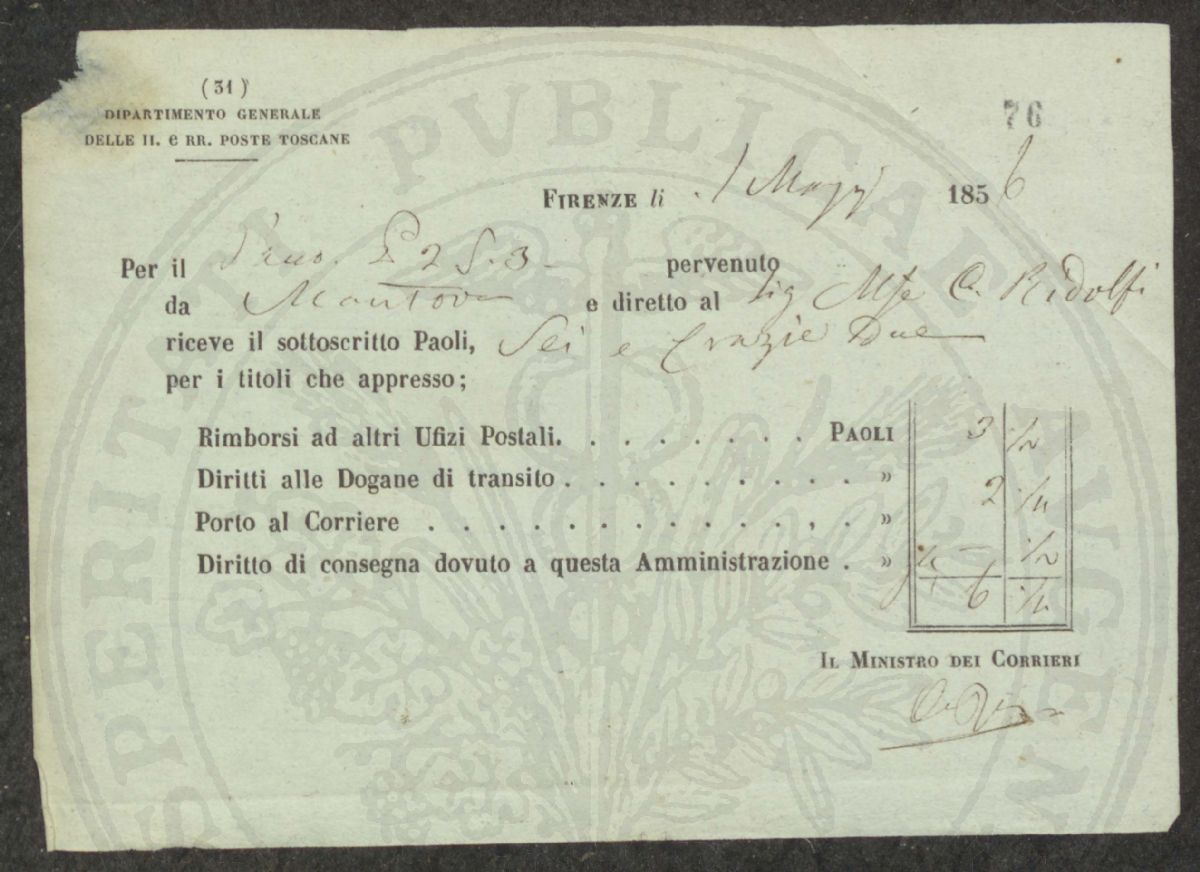 (31)
DIPARTIMENTO GENERALE
DELLE II. e RR. POSTE TOSCANE
76
FIRENZE li 1 Magg 1856
Per il 2 S. 3 pervenuto
da Mantova e diretto al Sig Mse C. Ridolfi
riceve il sottoscritto Paoli, Sei e Crazie Due
per i titoli che appresso;
Rimborsi ad altri Ufizi Postali. . . . . . . . PAOLI 3
Diritti alle Dogane di transito . . . . . . . . . . » 2
Porto al Corriere . . . . . . . . . . . . . . . »
Diritto di consegna dovuto a questa Amministrazione . »
6
IL MINISTRO DEI CORRIERI
PERITATI PVBLICAE AVGEN